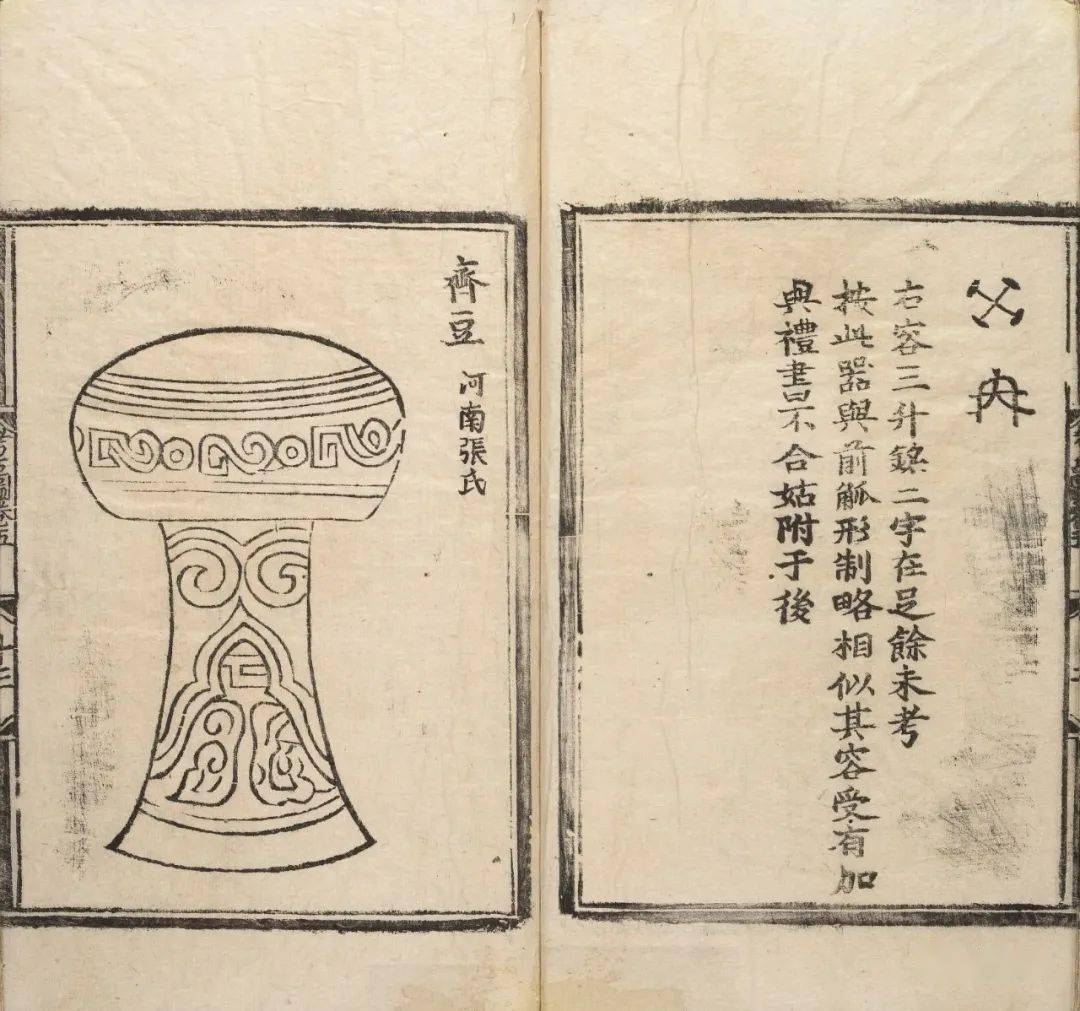 右容三升鐫二字在足餘未考
按此器與前觚形制略相似其容受有加
與禮書不合姑附于後
齊豆 河南張氏